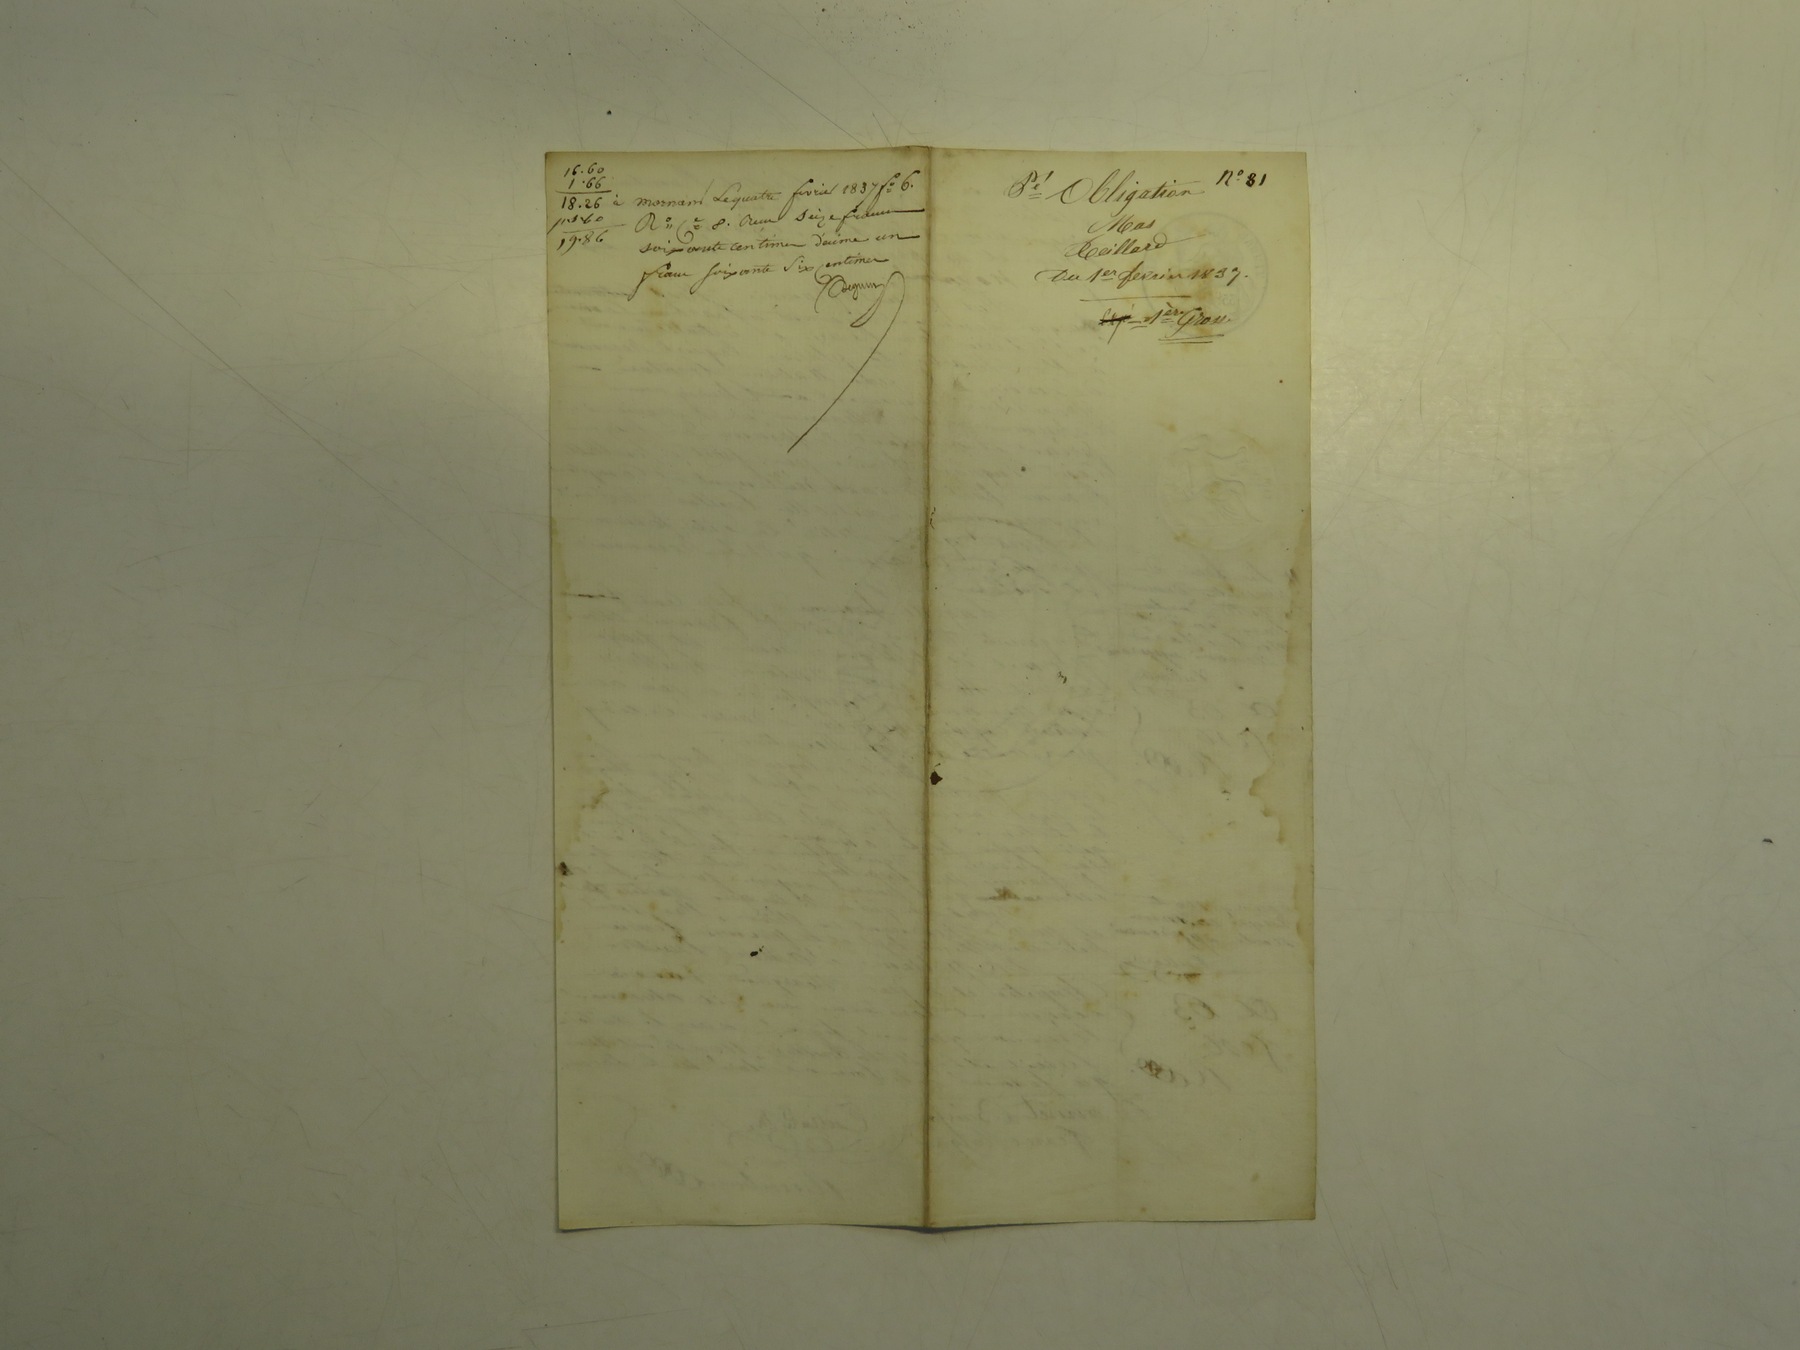 16.60
1.66
18.26
1.60
19.86
à mornant Le quatre fevrier 1837 f° 6.
R° C^e 8. Recu Seize francs
soixante centimes décime un
franc soixante Six centimes
N° 81
Obligation
Mas
Teillard
Du 1er fevrier 1837.
1ère Gross.